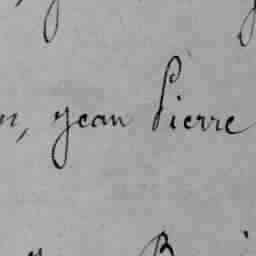 n, jean Pierre